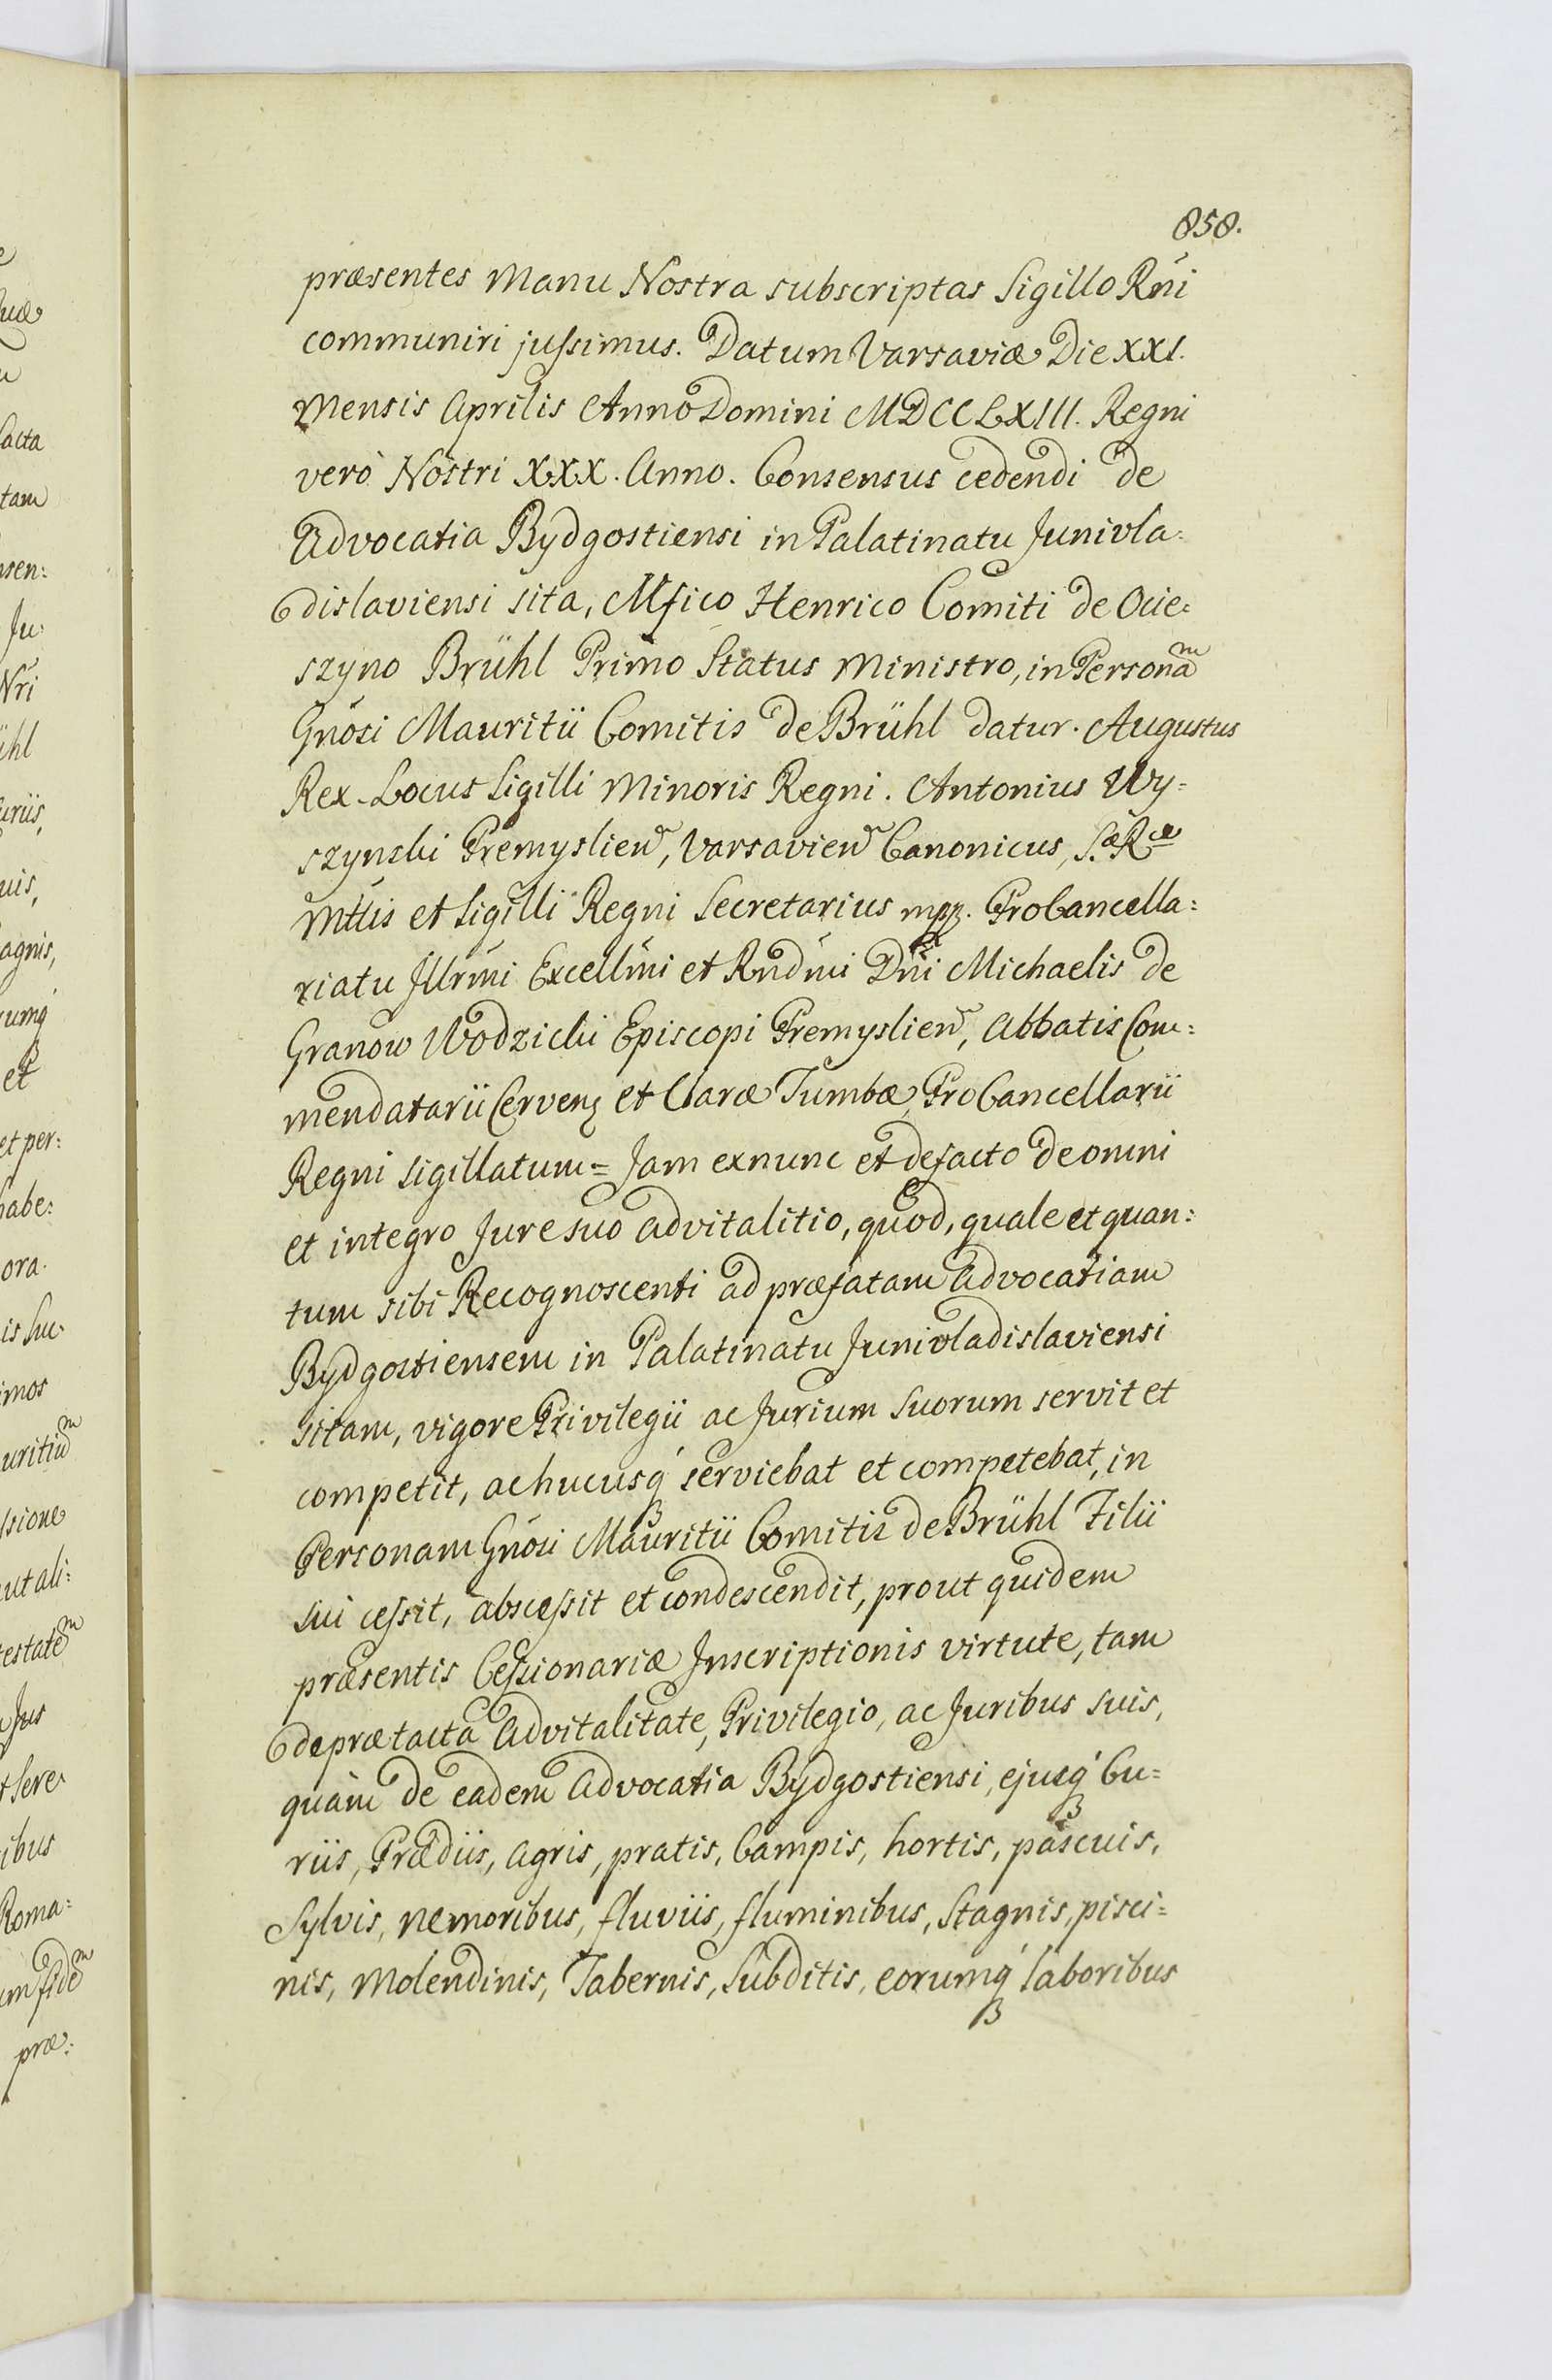 858.
præsentes Manu Nostra subscriptas Sigillo Rńi
communiri jussimus. Datum Varsaviæ Die XXI.
Mensis Aprilis Anno Domini MDCCLXIII. Regni
verò Nostri XXX. Anno. Consensus cedendi de
Advocatia Bydgostiensi in Palatinatu Junivla:
dislaviensi sita, Mfico Henrico Comiti de Ocie:
szyno Brühl Primo Status Ministro, in Personam
Gnósi Mauritii Comitis de Brühl datur. Augustus
Rex. Locus Sigilli Minoris Regni. Antonius Wy=
szynski Premyslien, Varsavien Canonicus, S.æ R.æ
Mttis et Sigilli Regni Secretarius mpp. ProCancella:
riatu Jllrmi Excellmi et Rndmi Dni Michaelis de
Granow Wodzicki Episcopi Premyslien, Abbatis Com:
mendatarii Cerven et Claræ Tumbæ, ProCancellarii
Regni Sigillatum = Jam ex nunc et de facto de omni
et integro Jure suo advitalitio, quod, quale et quan:
tum sibi Recognoscenti ad præfatam Advocatiam
Bydgostiensem in Palatinatu Junivladislaviensi
sitam, vigore Privilegii ac Jurium Suorum servit et
competit, ac hucusq́ serviebat et competebat, in
Personam Gnósi Mauritii Comitis de Brühl Filii
sui cessit, abscessit et condescendit, prout quidem
præsentis Cessionariæ Jnscriptionis virtute, tam
de prætacta Advitalitate, Privilegio, ac Juribus suis,
quàm de eadem Advocatia Bydgostiensi, ejusq́ Cu=
riis, Prædiis, Agris, pratis, Campis, hortis, pascuis,
Sylvis, Nemoribus, fluviis, fluminibus, Stagnis, pisci=
nis, Molendinis, Tabernis, Subditis, eorumq́ laboribus